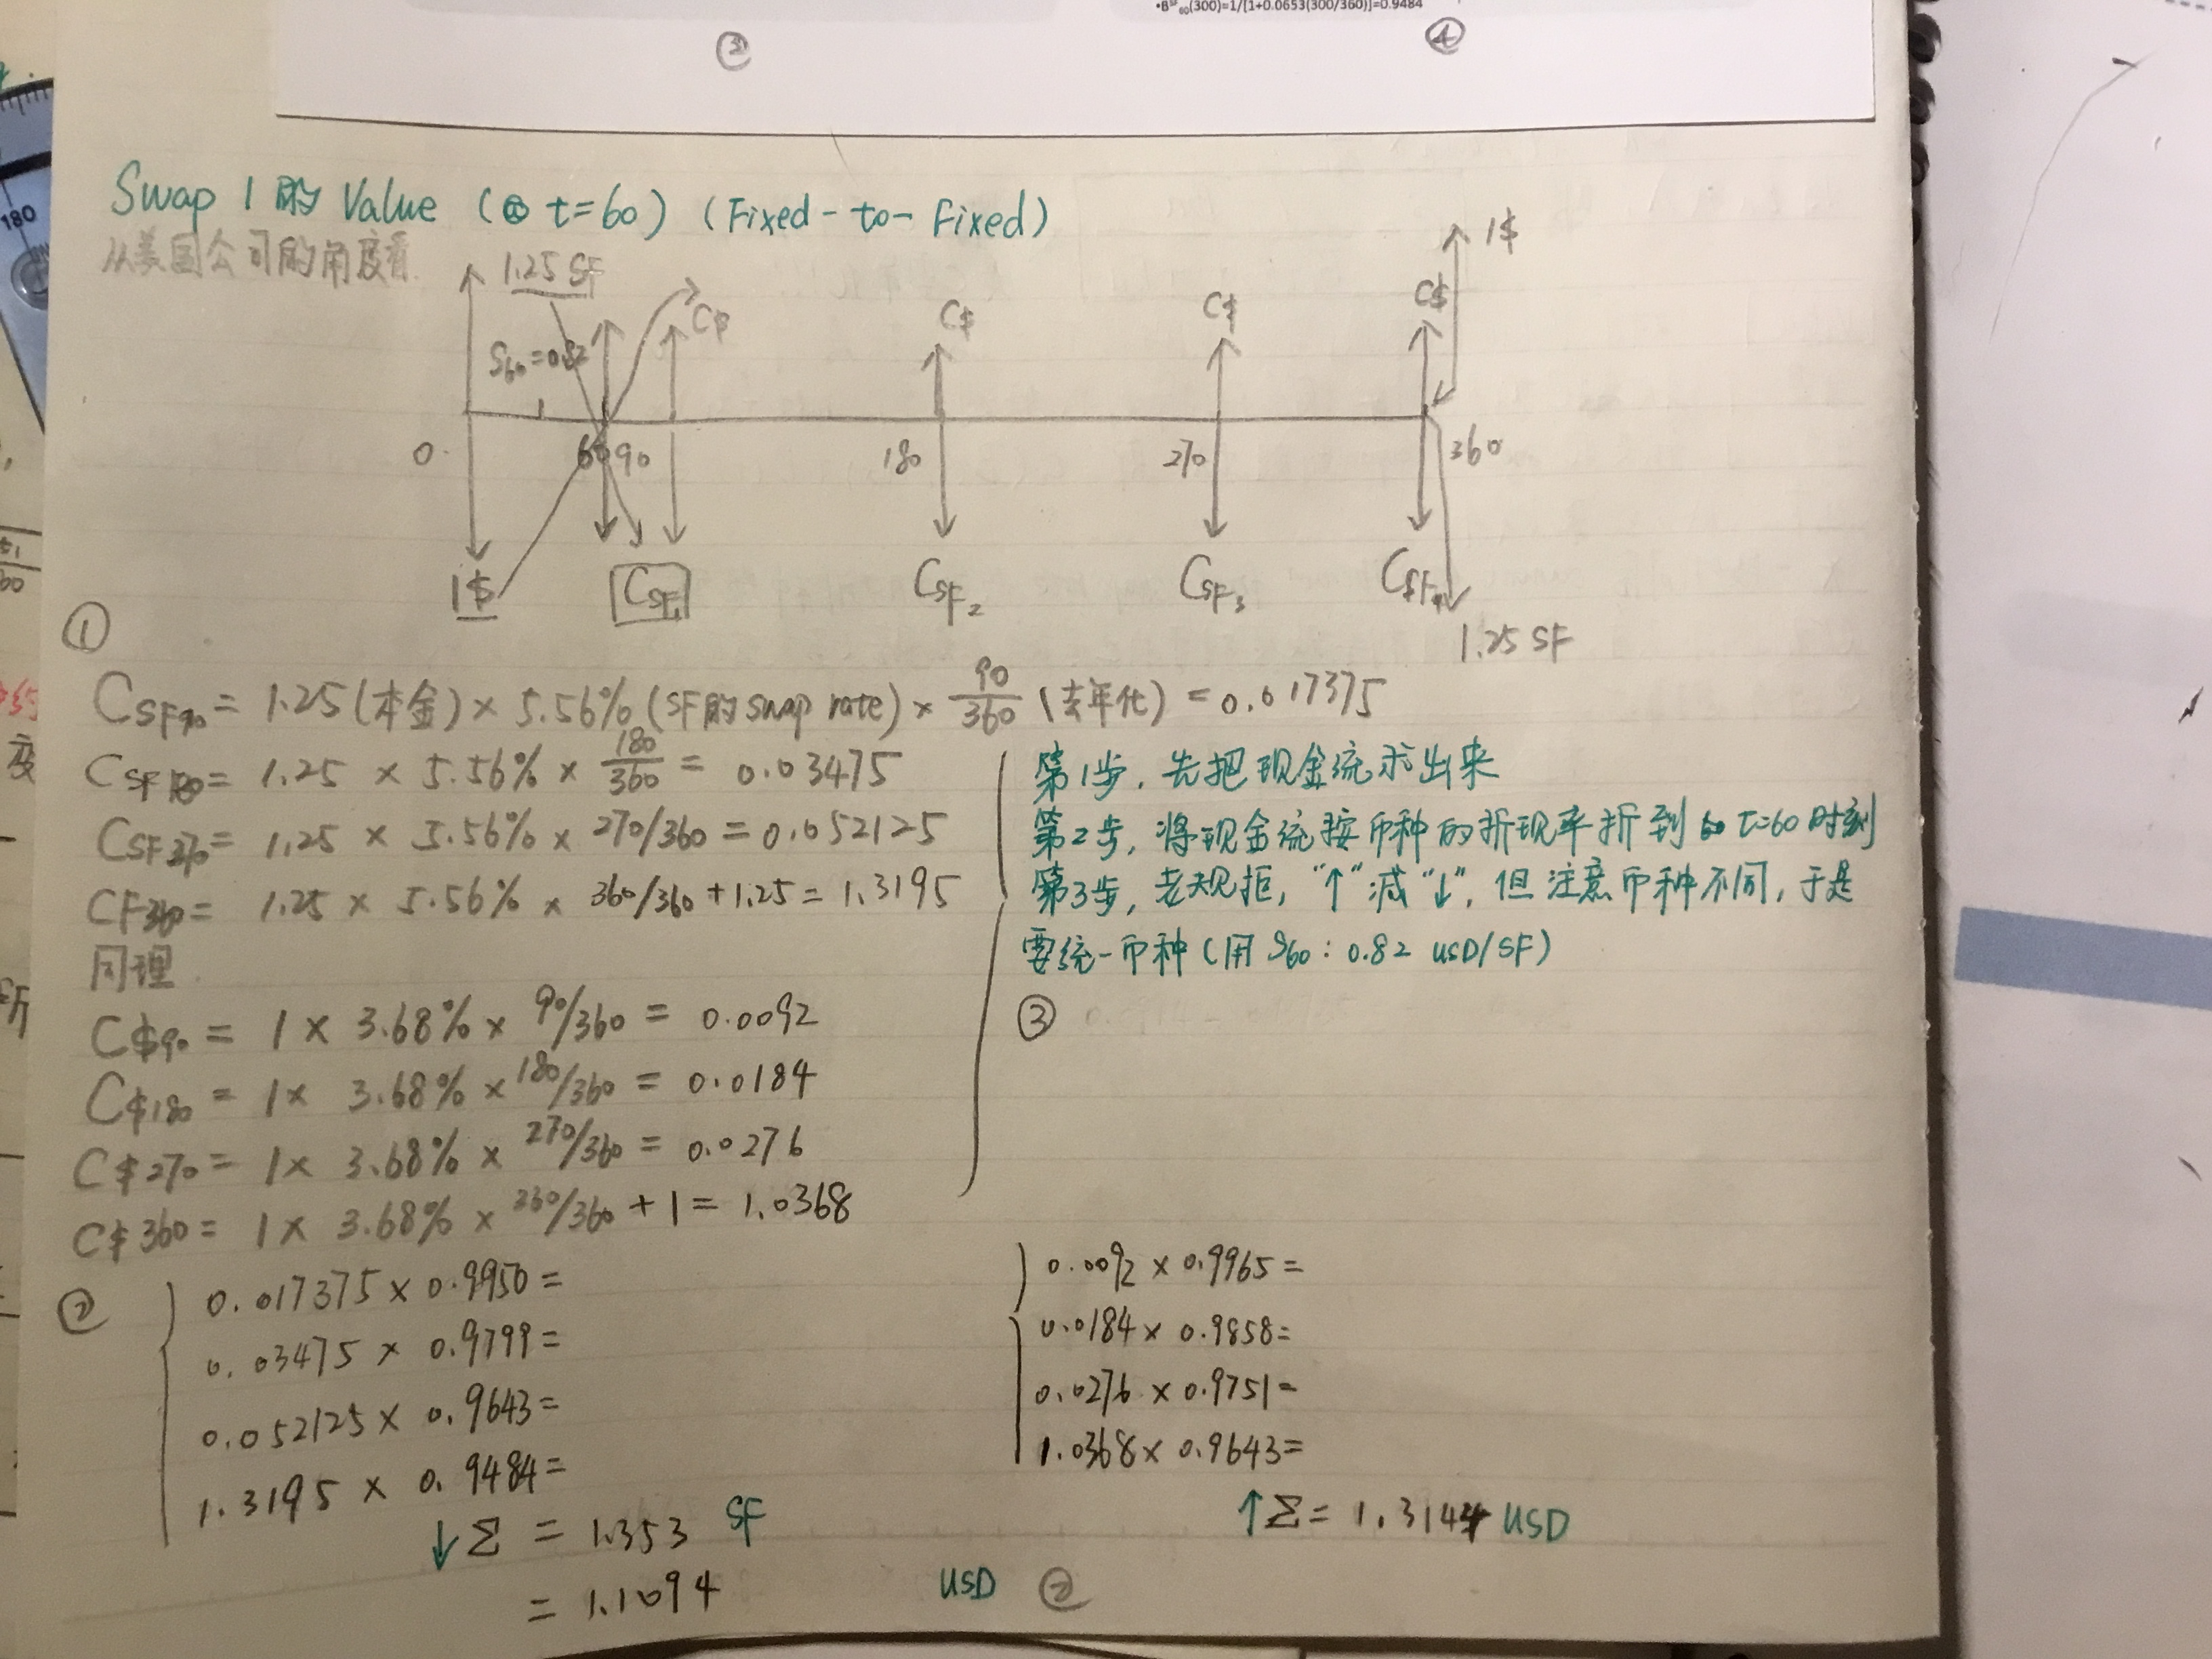 •B^SF_60(300)=1/[1+0.0653(300/360)]=0.9484
③ ④
180
Swap 1 的 Value (@ t=60) (Fixed-to-Fixed)
从美国公司的角度看.
1.25 SF
1$
S60=0.82
C$
C$
C$
C$
0
60 90
180
270
360
1$
CSF1
CSF2
CSF3
CSF4
1.25 SF
①
CSF90 = 1.25(本金) × 5.56% (SF的 swap rate) × 90/360 (去年化) = 0.017375
CSF180 = 1.25 × 5.56% × 180/360 = 0.03475
CSF270 = 1.25 × 5.56% × 270/360 = 0.052125
CF360 = 1.25 × 5.56% × 360/360 + 1.25 = 1.3195
同理.
C$90 = 1 × 3.68% × 90/360 = 0.0092
C$180 = 1 × 3.68% × 180/360 = 0.0184
C$270 = 1 × 3.68% × 270/360 = 0.0276
C$360 = 1 × 3.68% × 360/360 + 1 = 1.0368
第1步, 先把现金流求出来
第2步, 将现金流按币种的折现率折到 t=60 时刻
第3步, 老规拒, "↑" 减 "↓", 但注意币种不同, 于是
要统一币种 (用 S60: 0.82 USD/SF)
③
②
0.017375 × 0.9950 =
0.03475 × 0.9799 =
0.052125 × 0.9643 =
1.3195 × 0.9484 =
↓Σ = 1.353 SF
= 1.1094 USD
0.0092 × 0.9965 =
0.0184 × 0.9858 =
0.0276 × 0.9751 =
1.0368 × 0.9643 =
↑Σ = 1.3144 USD
②